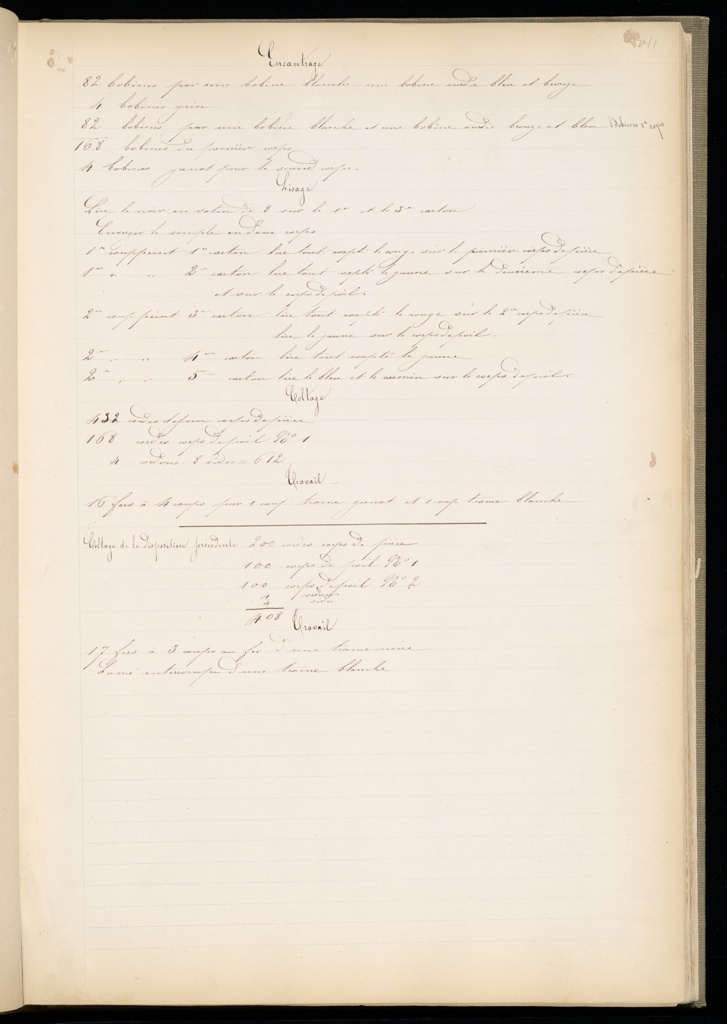 Encantrage
82 bobines par une bobine blanche une bobine ordre bleu et
4 bobines
82 bobines par une bobine blanche et une bobine ordre et bleu Bobines 1er corps
168 bobines du premier corps
4 bobines grenat pour le second corps.
Lisage
Lire le noir en satin de 8 sur le 1er et le 3me carton
le semple en deux corps
1er coup 1er carton lire tout excepté le rouge sur le premier corps de pièce
1er " " 2me carton lire tout excepté le jaune sur le deuxième corps de pièce
et sur le corps de poil.
2me coup 3me carton lire tout excepté le rouge sur le 2me corps de pièce
lire le jaune sur le corps de poil.
2me " " 4me carton lire tout excepté le jaune
2me " " 5me carton lire le bleu et le sur le corps de poil.
Colletage
432 cordes corps de pièce
168 cordes corps de poil No 1
4 cordons 8 cordes = 612
Travail
16 fers à 4 coups par 1 coup trame grenat et 1 coup trame blanche
Colletage de la disposition précédente 200 cordes corps de pièce
100 corps de poil No 1
100 corps de poil No 2
408
Travail
17 fers à 3 coups au fer d'une trame noire
interrompu d'une trame blanche